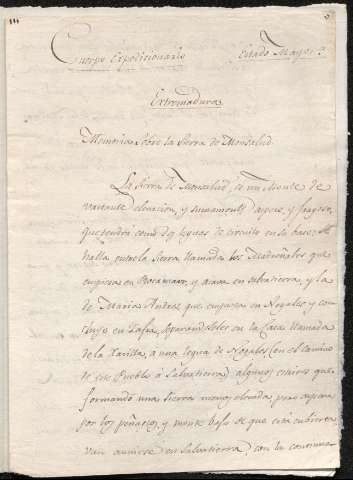 Cuerpo Expedicionario Estado Mayor
Extremadura
Memoria sobre la Sierra de Monsalud.
La Sierra de Monsalud, es un Monte de
bastante elevacion, y sumamente aspero, y fragoso,
que tendrá como dos leguas de circuito en su base: Se
halla entre la Sierra llamada los Madroñales que
empieza en y acava en Salvatierra, y la
de Maria Andres que empieza en Nogales y con-
cluye en Zafra, separandoles en la Casa llamada
de la Parrilla, a una legua de Nogales (en el camino
de este Pueblo á Salvatierra) algunos cerros que
formando una sierra menos elevada pero aspera
por los peñascos, y monte bajo de que está cubierta
van á unirse en Salvatierra con la continua-